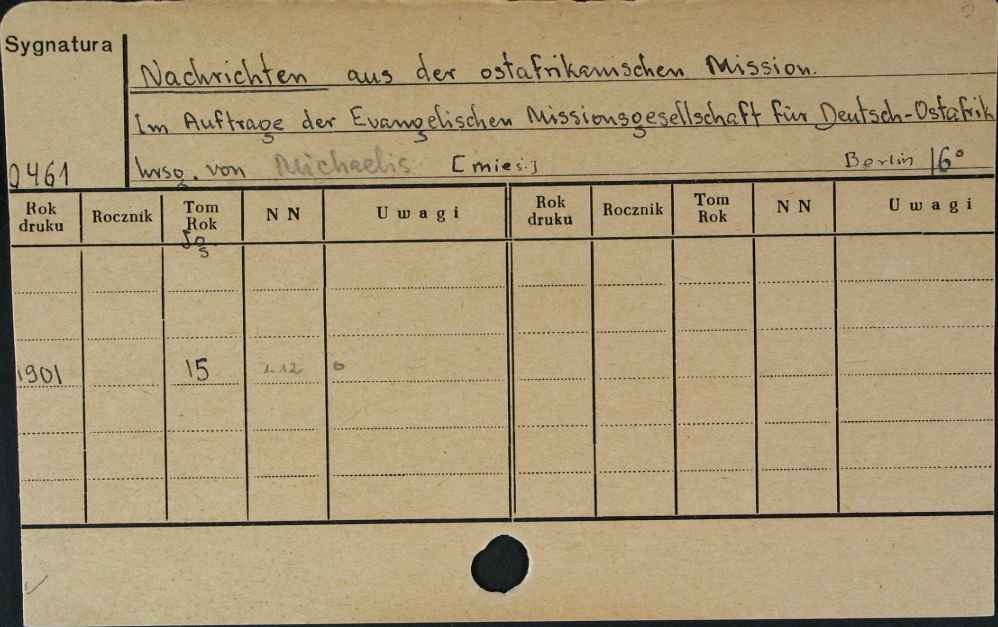 Sygnatura
Nachrichten aus der ostafrikanischen Mission.
Im Auftrage der Evangelischen Missionsgesellschaft für Deutsch-Ostafrik
hrsg. von Michaelis [mies.] Berlin 16°
0461
Rok druku Rocznik Tom Rok N N Uwagi Rok druku Rocznik Tom Rok N N Uwagi
1901 15 1-12 0